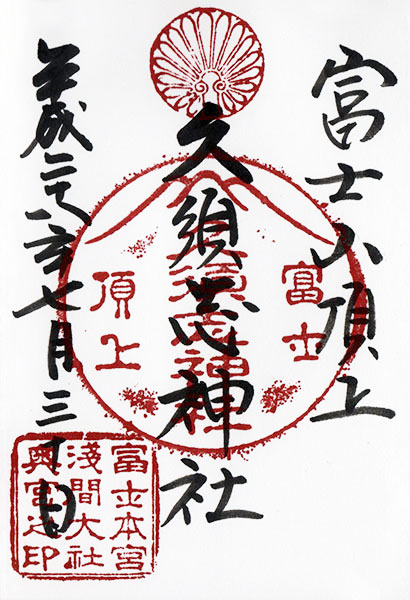 富士山頂上
久須志神社
平成二十年七月三十日
富士
頂上
富士本宮
淺間大社
奥宮之印